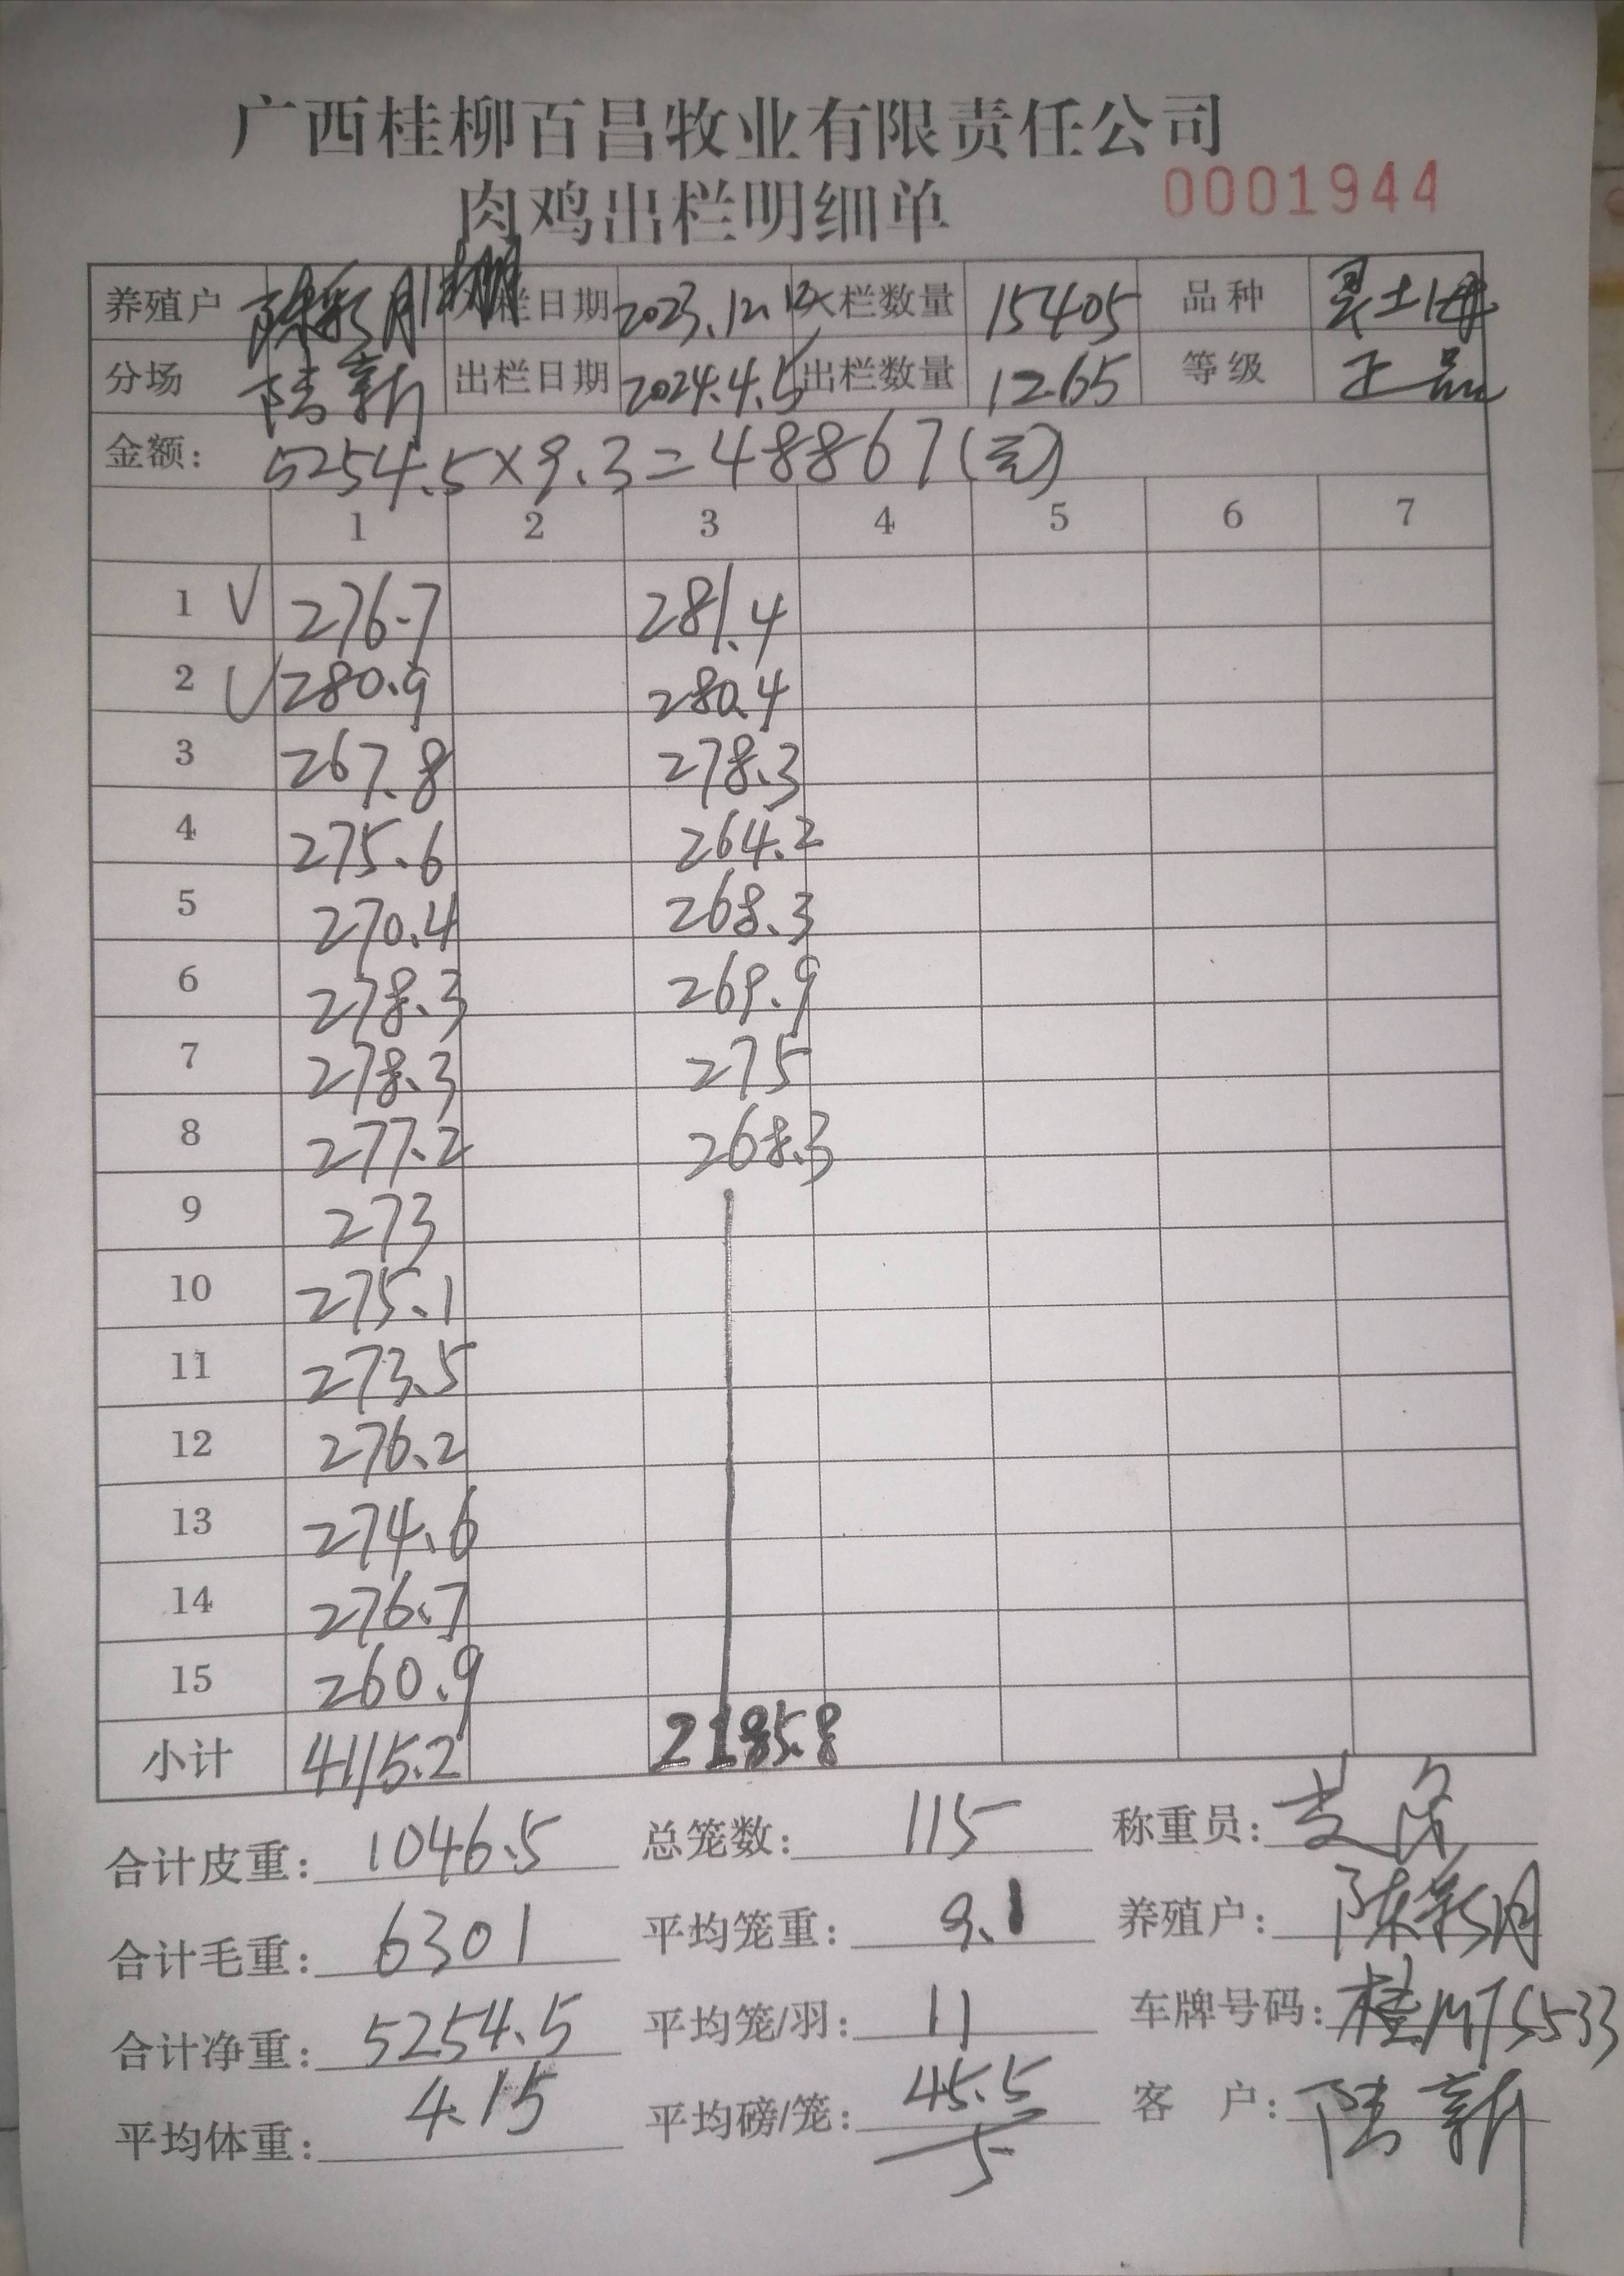 广西桂柳百昌牧业有限责任公司
肉鸡出栏明细单 0001944
养殖户 陈彩月 栏日期 2023.12.12 入栏数量 15405 品种 灵土母
分场 陆新 出栏日期 2024.4.5 出栏数量 1265 等级 正品
金额: 5254.5×9.3=48867(元)
1 2 3 4 5 6 7
1 V 276.7 281.4
2 V 280.9 280.4
3 267.8 278.3
4 275.6 264.2
5 270.4 268.3
6 278.3 269.9
7 278.3 275
8 277.2 268.3
9 273
10 275.1
11 273.5
12 276.2
13 274.6
14 276.7
15 260.9
小计 4115.2 2185.8
合计皮重: 1046.5 总笼数: 115 称重员:
合计毛重: 6301 平均笼重: 9.1 养殖户: 陈彩月
合计净重: 5254.5 平均笼/羽: 11 车牌号码: 桂M75533
平均体重: 4.15 平均磅/笼: 45.5 客户: 陆新
5